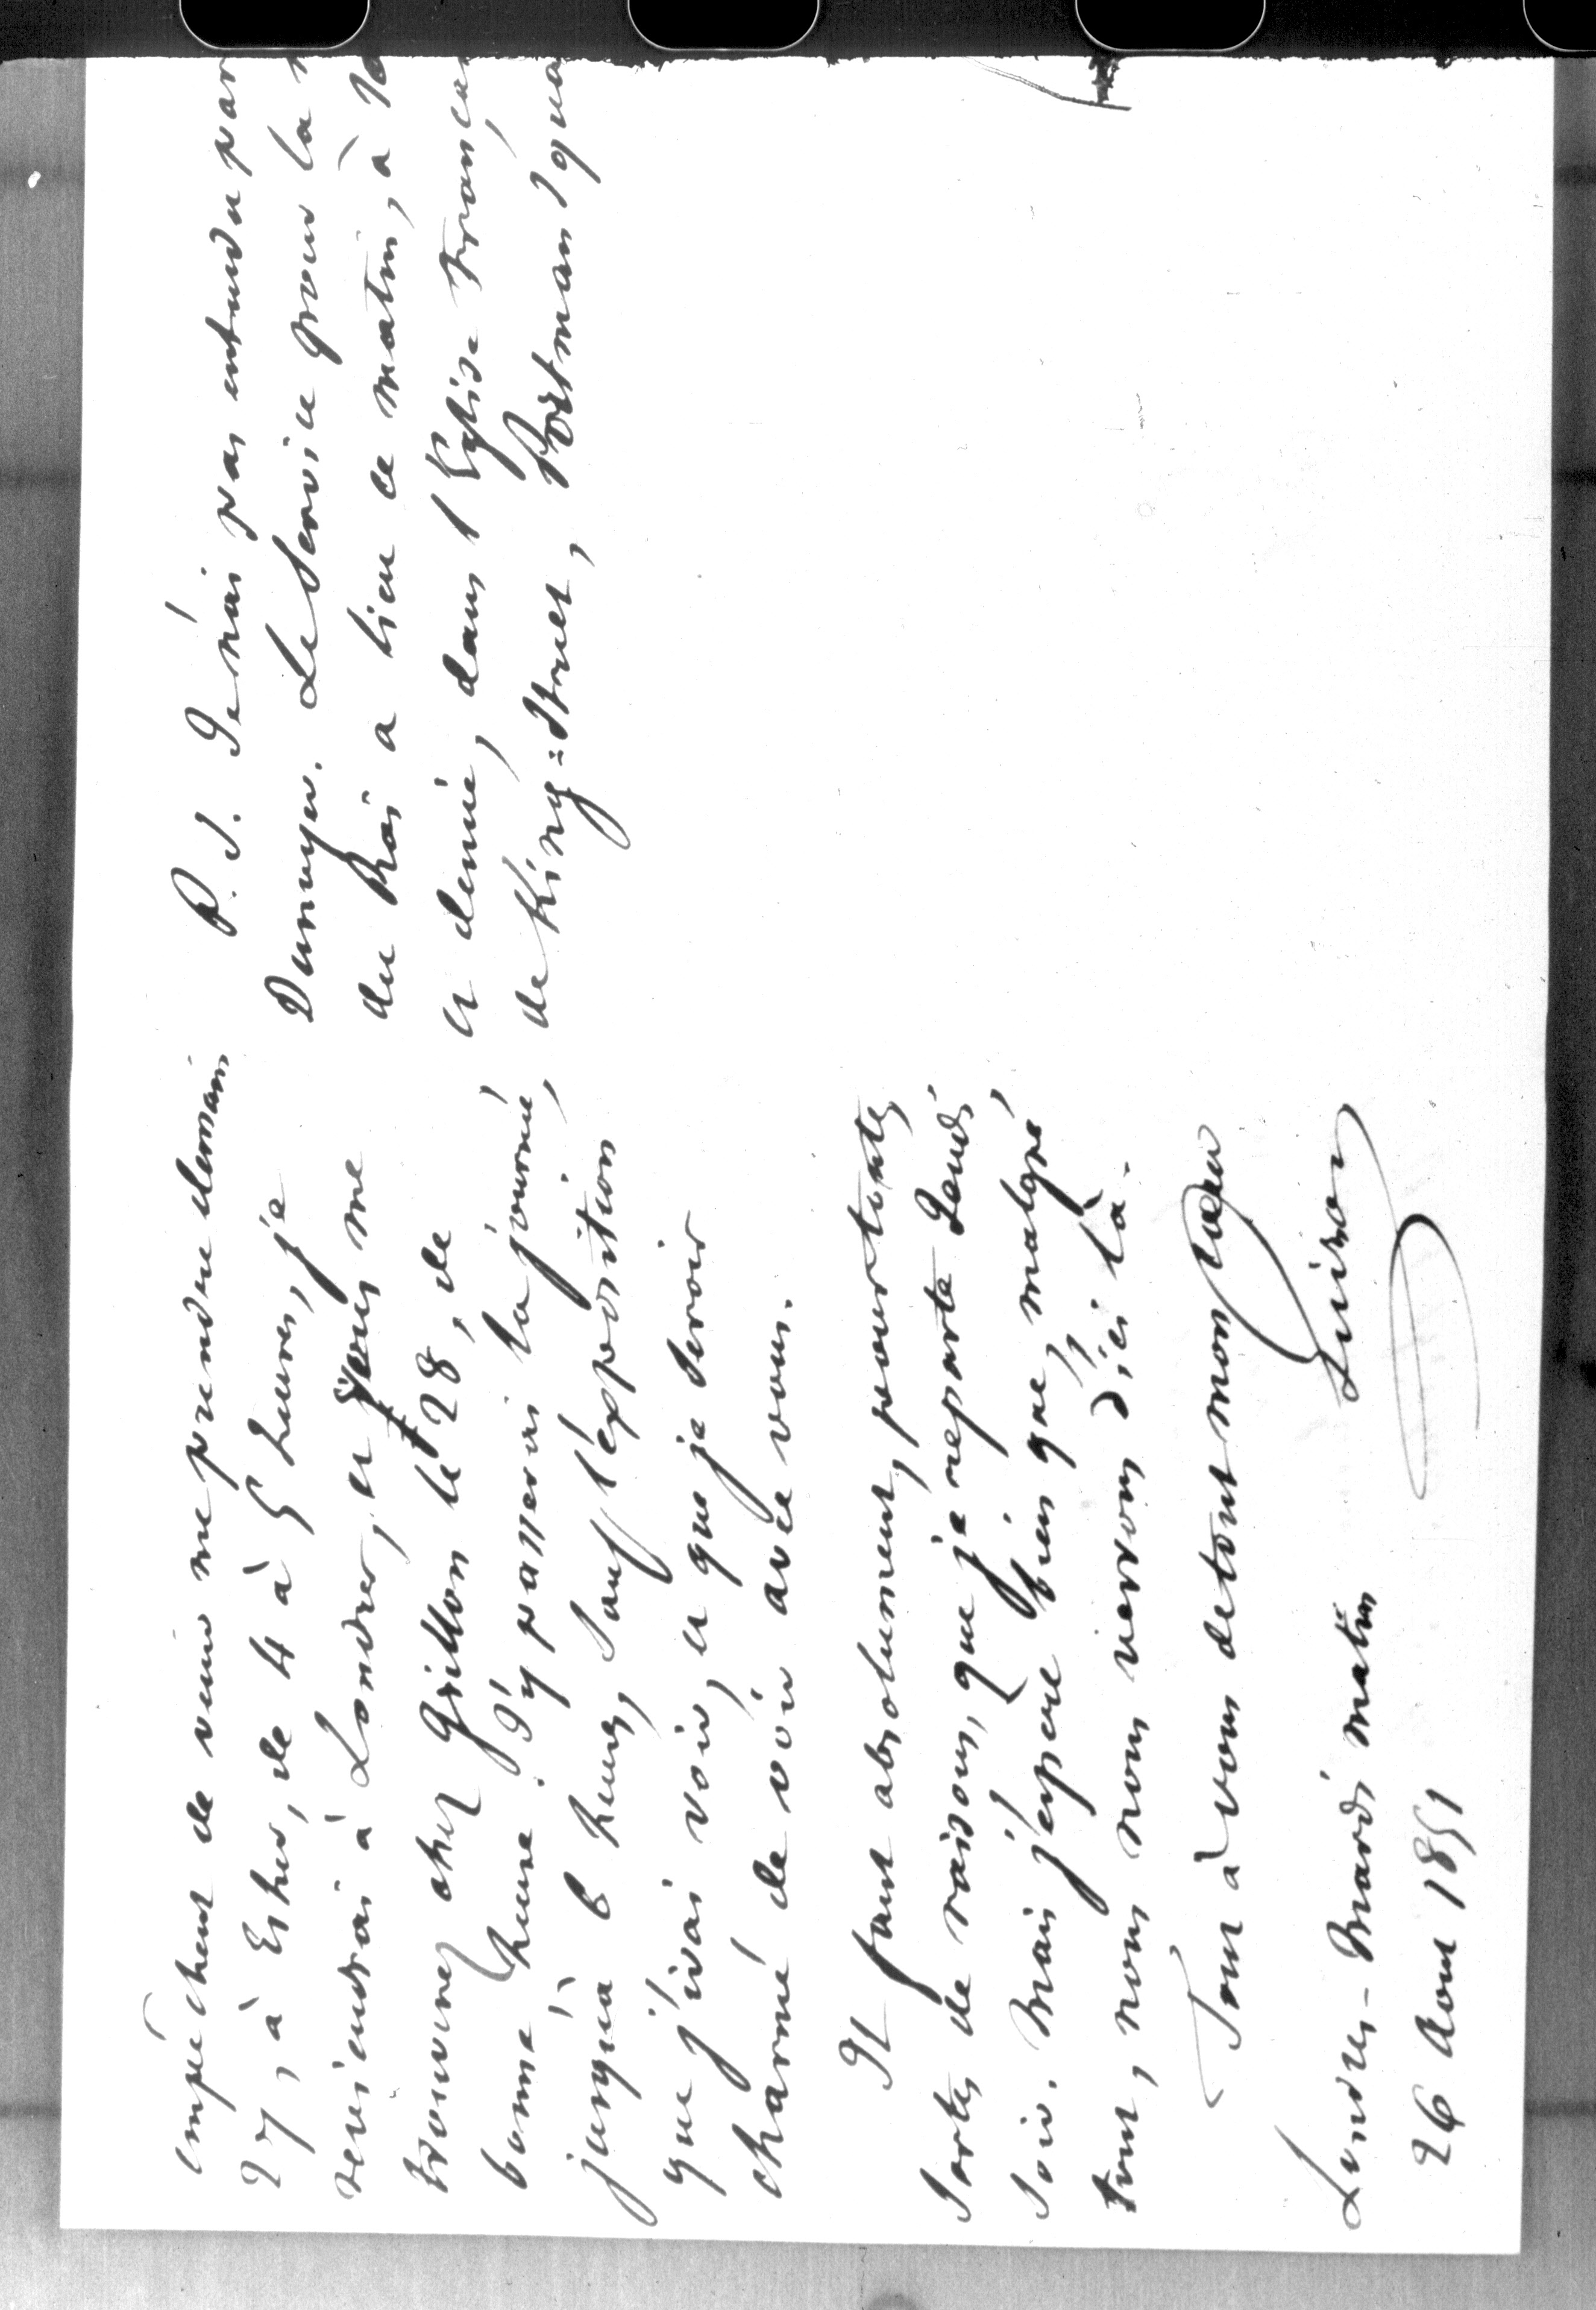 empêchent de venir me prendre demain
27, à Esher, de 4 à 5 heures, je
reviendrai à Londres, et vous me
trouverez chez Grillon le 28, de
bonne heure. J'y passerai la journée,
jusqu'à 6 heures, sauf l'exposition
que j'irai voir, et que je serois
charmé de voir avec vous.
Il faut absolument, pour toutes
sortes de raisons, que je reparte Jeudi
soir. Mais j'espère bien que, malgré
tout, nous nous verrons d'ici là.
Tout à vous de tout mon cœur
Londres - Mardi matin
26 Aout 1851
P. S. Je n'ai pas entendu par
Dumoyer. Le Service pour la
du Roi a lieu ce matin, à 10
et demie, dans l'Eglise França
de King=Street, Portman Squa